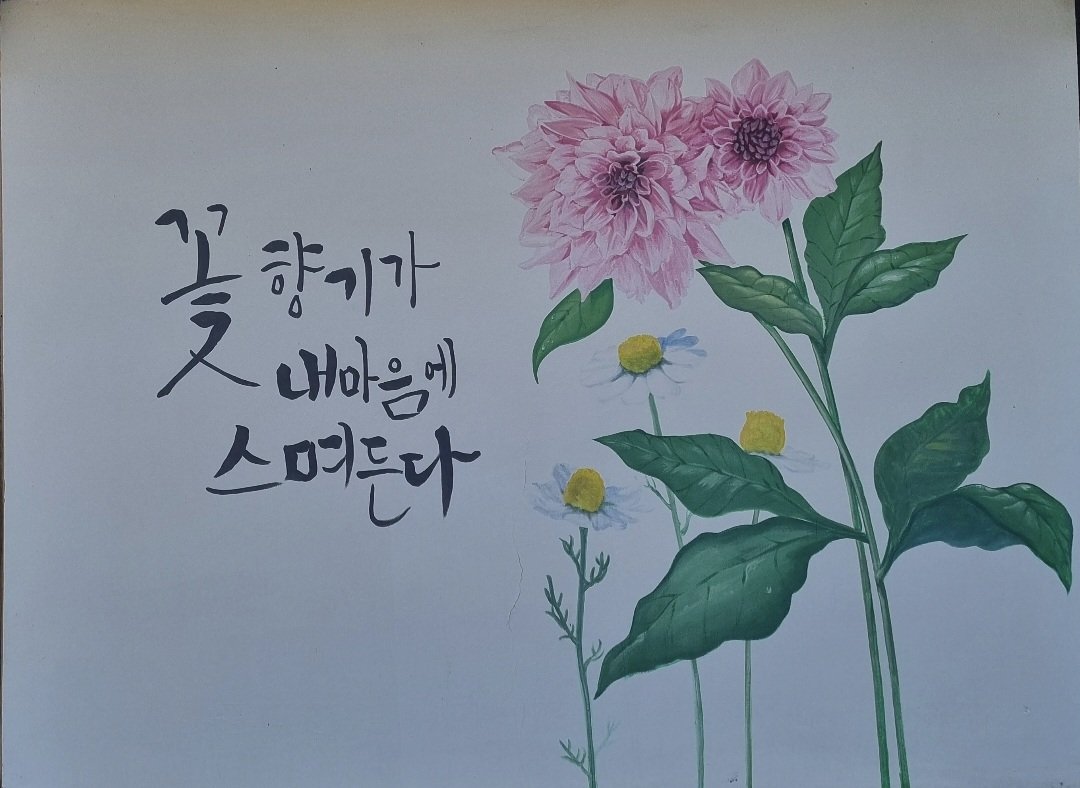 꽃향기가
내마음에
스며든다